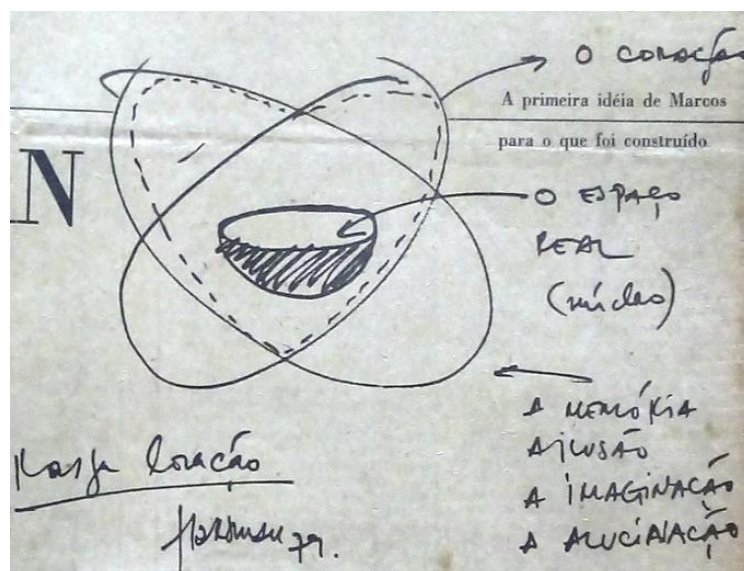 O CORAÇÃO
A primeira idéia de Marcos
para o que foi construído
N
O ESPAÇO
REAL
(núcleo)
A MEMÓRIA
A ILUSÃO
A IMAGINAÇÃO
A ALUCINAÇÃO
Rasga Coração
79.